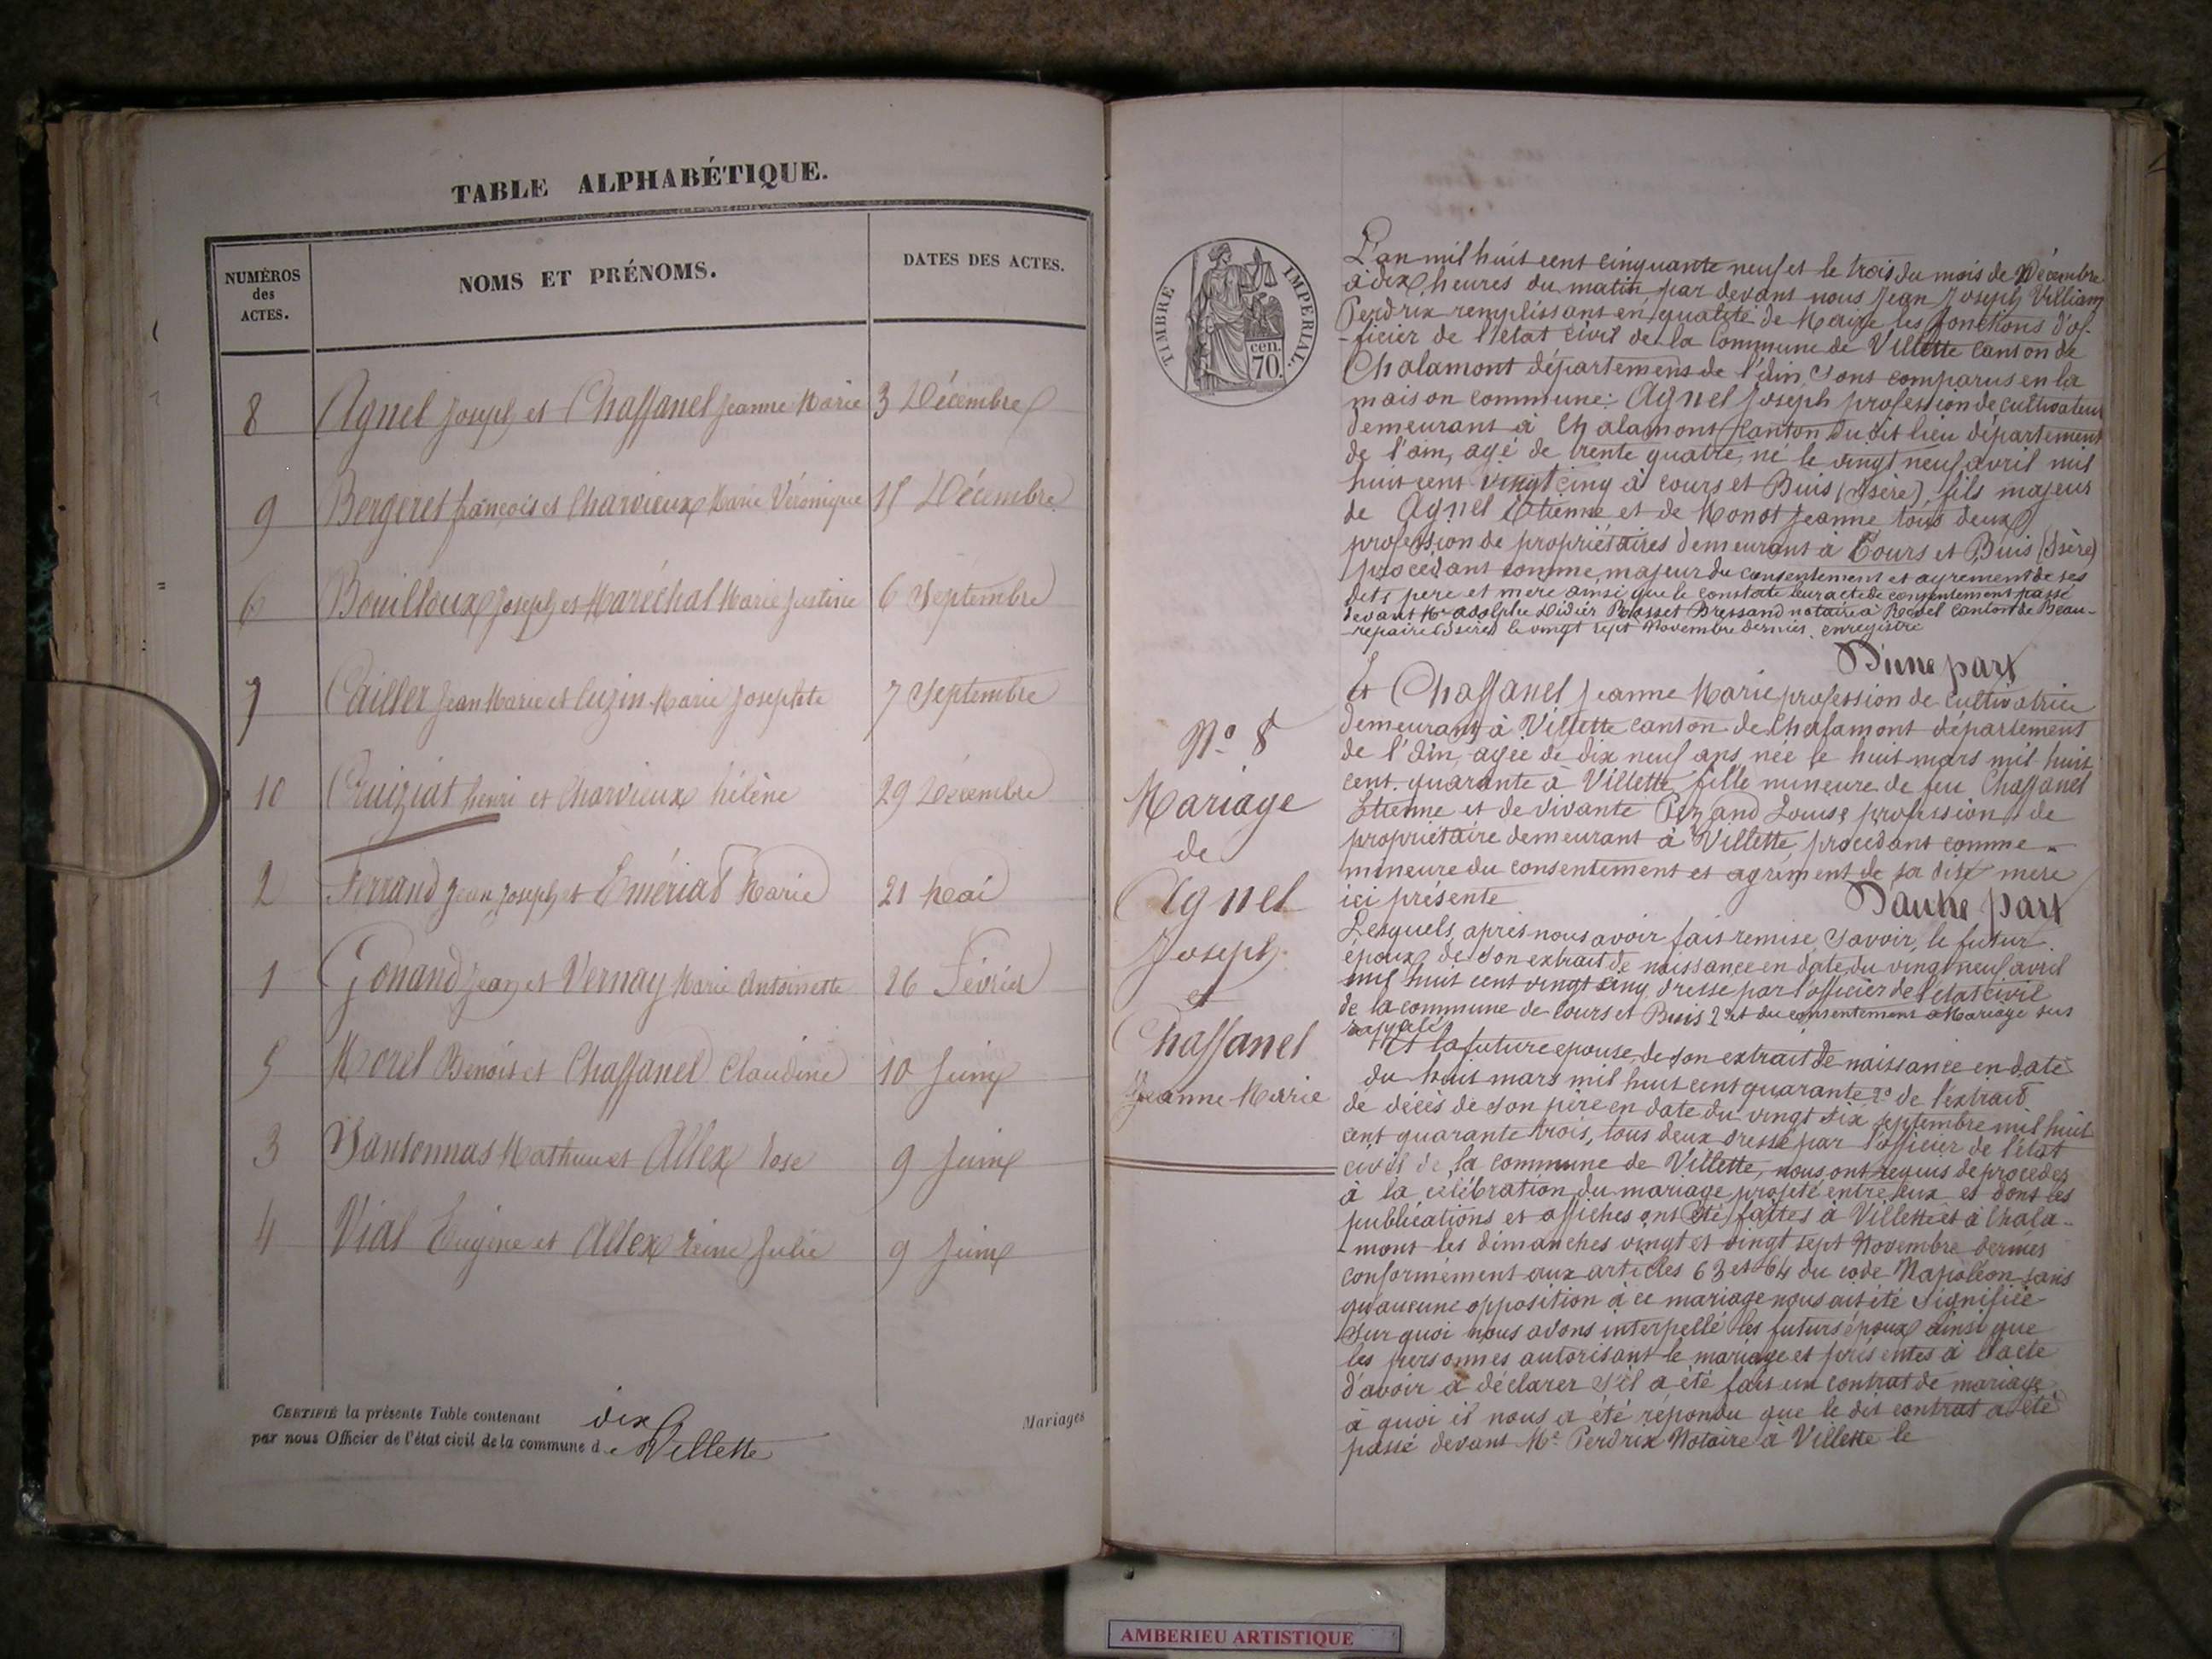 TABLE ALPHABÉTIQUE.
NUMÉROS
des
ACTES.
NOMS ET PRÉNOMS.
DATES DES ACTES.
8 Agnel Joseph et Chassanel Jeanne Marie 3 Décembre
9 Bergeret françois et Charvieux Marie Véronique 15 Décembre
6 Bouilloux Joseph et Maréchal Marie Justine 6 Septembre
7 Cailler Jean Marie et Cuzin Marie Josephte 7 Septembre
10 Cruiziat henri et Charvieux hélène 29 Décembre
2 Ferrand Jean Joseph et Emériat Marie 21 Mai
1 Gonand Jean et Vernay Marie Antoinette 26 Février
5 Morel Benoit et Chassanel Claudine 10 Juin
3 Vantonnas Mathieu et Allex Rose 9 Juin
4 Vial Eugène et Allex reine Julie 9 Juin
CERTIFIÉ la présente Table contenant dix Mariages
par nous Officier de l'état civil de la commune de Villette
TIMBRE IMPERIAL.
cen.
70.
N° 8
Mariage
de
Agnel
Joseph
et
Chassanel
Jeanne Marie
L'an mil huit cent cinquante neuf et le trois du mois de Décembre
à dix heures du matin, par devant nous Jean Joseph Villiam
Perdrix remplissant en qualité de Maire les fonctions d'of-
-ficier de l'état civil de la Commune de Villette Canton de
Chalamont département de l'ain, sont comparus en la
maison commune: Agnel Joseph profession de cultivateur
demeurant à Chalamont Canton dudit lieu département
de l'ain, agé de trente quatre, né le vingt neuf avril mil
huit cent vingt cinq à cours et Buis (isère), fils majeur
de Agnel Etienne et de Monot Jeanne tous deux
profession de propriétaires demeurant à Cours et Buis (isère)
procédant comme majeur du consentement et agrement de ses
dits pere et mere ainsi que le constate leur acte de consentement passé
devant Me adolphe Didier Brosset Bressand notaire à Revel canton de Beau-
-repaire (isère) le vingt sept Novembre dernier, enregistré
D'une part
Et Chassanel Jeanne Marie profession de Cultivatrice
demeurant à Villette canton de Chalamont département
de l'ain, agée de dix neuf ans, née le huit mars mil huit
cent quarante à Villette, fille mineure de feu Chassanel
Etienne et de vivante Perrand Louise profession de
propriétaire demeurant à Villette, procédant comme
mineure du consentement et agrément de sa dite mere
ici présente D'autre part
Lesquels, après nous avoir fait remise, Savoir, le futur
époux de son extrait de naissance en date du vingt neuf avril
mil huit cent vingt cinq, dressé par l'officier de l'état civil
de la commune de Cours et Buis 2° et du consentement à Mariage sus
rappelé,
Et la future epouse, de son extrait de naissance en date
du huit mars mil huit cent quarante 2° de l'extrait
de décès de son père en date du vingt six septembre mil huit
cent quarante trois, tous deux dressé par l'officier de l'état
civil de la commune de Villette, nous ont requis de procéder
à la célébration du mariage projeté entre eux et dont les
publications et affiches ont été faites à Villette et à Chala-
-mont les dimanches vingt et vingt sept Novembre dernier
conformément aux articles 63 et 64 du code Napoléon sans
qu'aucune opposition à ce mariage nous ait été signifiée
Sur quoi nous avons interpellé les futurs époux ainsi que
les personnes autorisant le mariage et présentes à l'acte
d'avoir à déclarer s'il a été fait un contrat de mariage
à quoi il nous a été répondu que le dit contrat a été
passé devant Me Perdrix Notaire à Villette le
AMBERIEU ARTISTIQUE